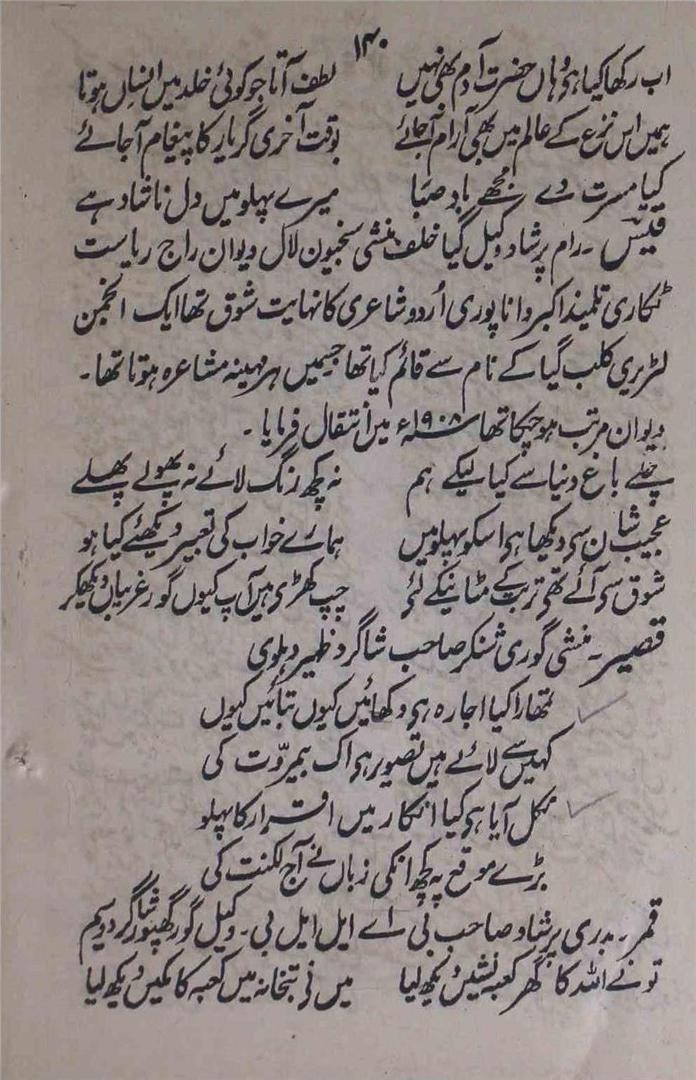 ۱۴۰
اب رکھا کیا ہی وہاں حضرت آدم بھی نہیں لطف آتا جو کوئی خلد میں انساں ہوتا
ہمیں اس نزع کے عالم میں بھی آرام آجائے بوقت آخری گر یار کا پیغام آجائے
کیا مسرت دے مجھے باد صبا میرے پہلو میں دل ناشاد ہے
قیس ۔ رام پرشاد وکیل گیا خلف منشی سنجیون لال دیوان راج ریاست
ٹکاری تلمیذ اکبر داناپوری اُردو شاعری کا نہایت شوق تھا ایک انجمن
لٹریری کلب گیا کے نام سے قائم کیا تھا جسمیں ہر مہینہ مشاعرہ ہوتا تھا ۔
دیوان مرتب ہو چکا تھا ۱۹۰۸ء میں انتقال فرمایا ۔
چلے باغ دنیا سے کیا لیکے ہم نہ کچھ رنگ لائے نہ پھولے پھلے
عجیب شان سی دیکھا ہی اسکو پہلو میں ہمارے خواب کی تعبیر دیکھئے کیا ہو
شوق سی آئے تھی تربت کے مٹانیکے لئی چپ کھڑی ہیں آپ کیوں گور غریباں دیکھکر
قصیر ۔ منشی گوری شنکر صاحب شاگرد ظہیر دہلوی
تمھارا کیا اجارہ ہی دکھائیں کیوں بتائیں کیوں
کہیں سے لائے ہیں تصویر ہم اک بیمروّت کی
نکل آیا ہی کیا انکار میں اقرار کا پہلو
بڑے موقع پہ کچھ انکی زباں نے آج لکنت کی
قمر ۔ بدری پرشاد صاحب بی اے ایل ایل بی ۔ وکیل گورکھپور شاگرد وسیم
تو نے اللہ کا گھر کعبہ نشیں دیکھ لیا میں نی بتخانہ میں کعبہ کا مکیں دیکھ لیا